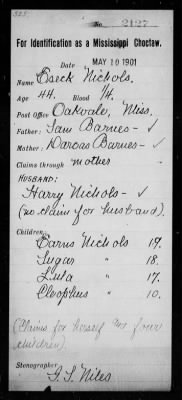 No. 2127
For Identification as a Mississippi Choctaw.
Date MAY 10 1901
Name Eseck Nichols.
Age 44. Blood 1/4.
Post Office Oakvale, Miss.
Father: Sam Barnes - ✓
Mother: Darcas Barnes - ✓
Claims through mother
HUSBAND:
Harry Nichols - ✓
(no claim for husband).
Children:
Nichols 19.
Sugar " 18.
Lula " 17.
Cleophus " 10.
(Claims for herself and four
children).
Stenographer
G. S. Niles